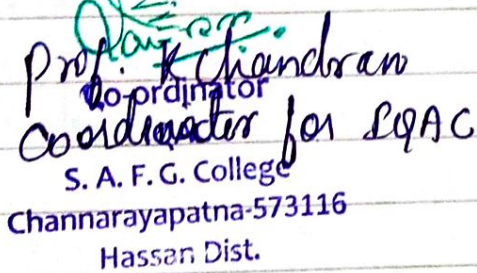 Prof. K Chandran
Co-ordinator
Coordinator for IQAC
S. A. F. G. College
Channarayapatna-573116
Hassan Dist.